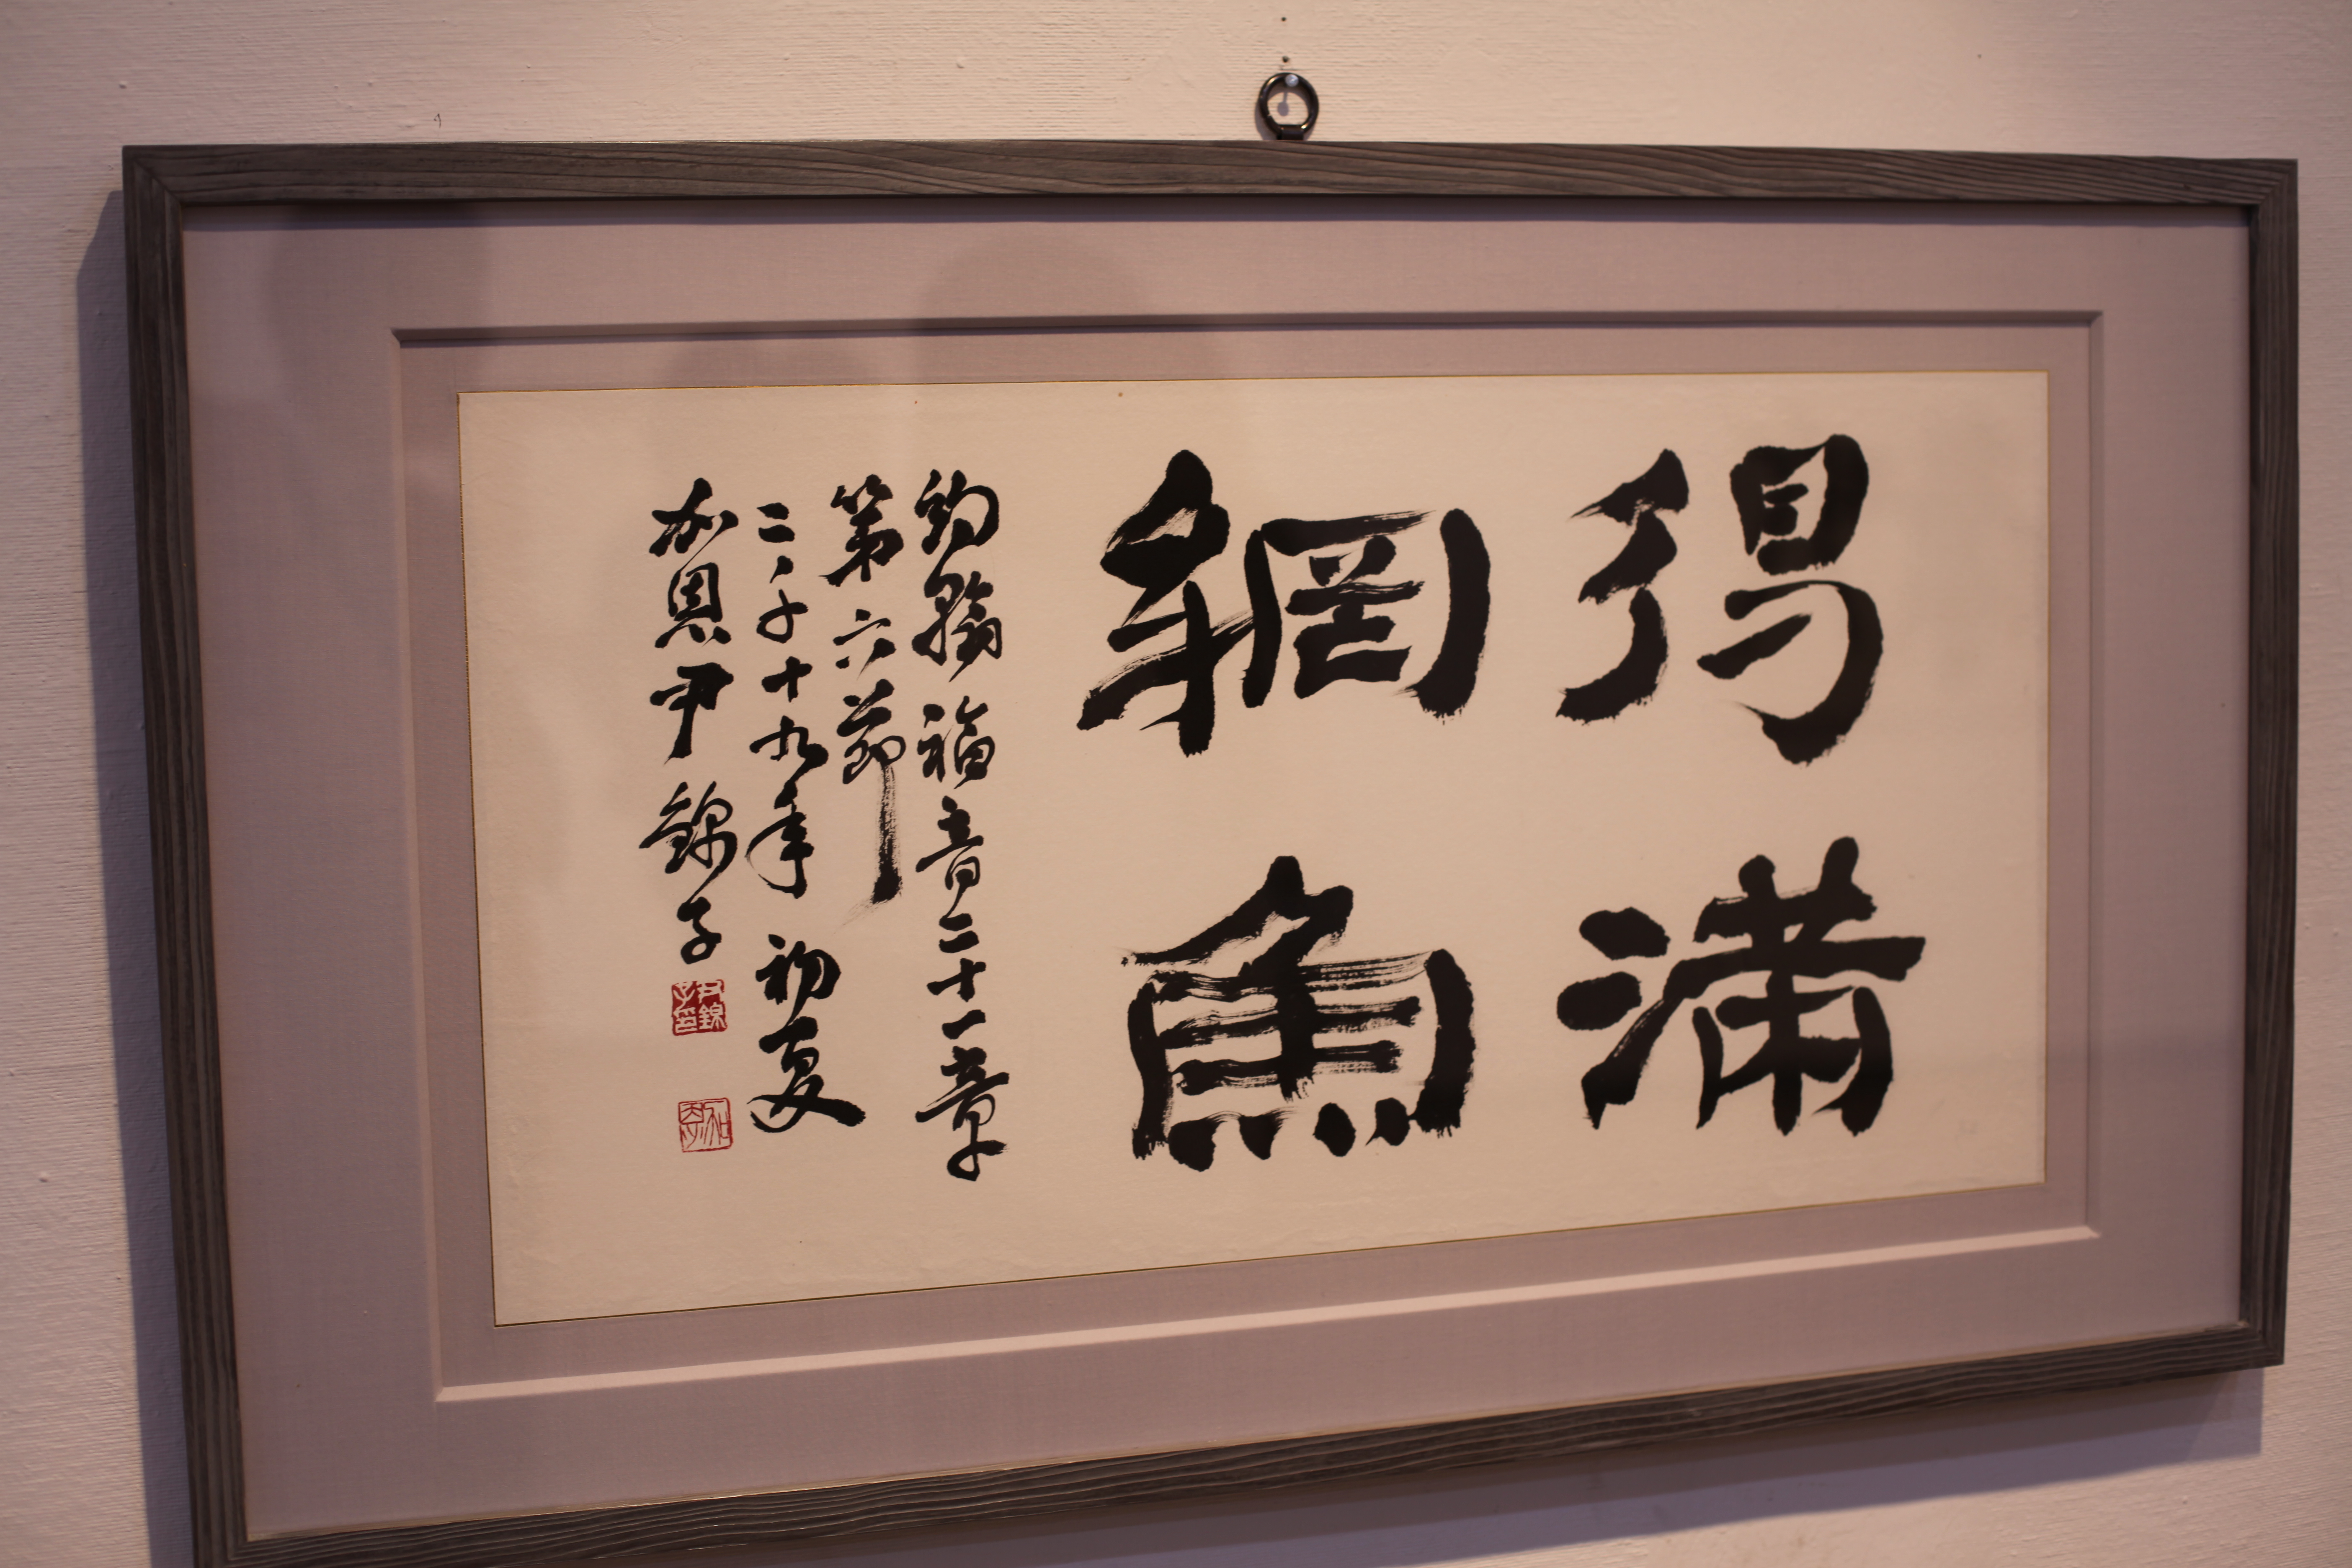 得滿
網魚
約翰福音二十一章
第六節
二千十九年 初夏
加恩 尹錦子
尹錦子印